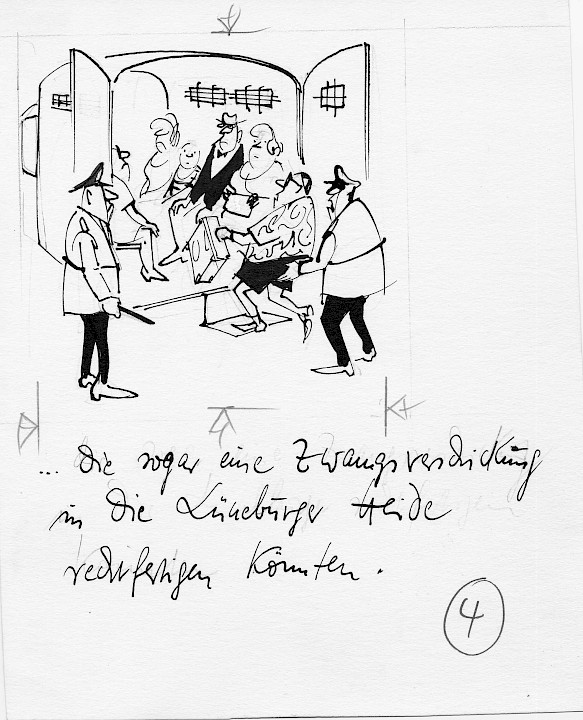 ... die sogar eine Zwangsverschickung
in die Lüneburger Heide
rechtfertigen könnten.
4